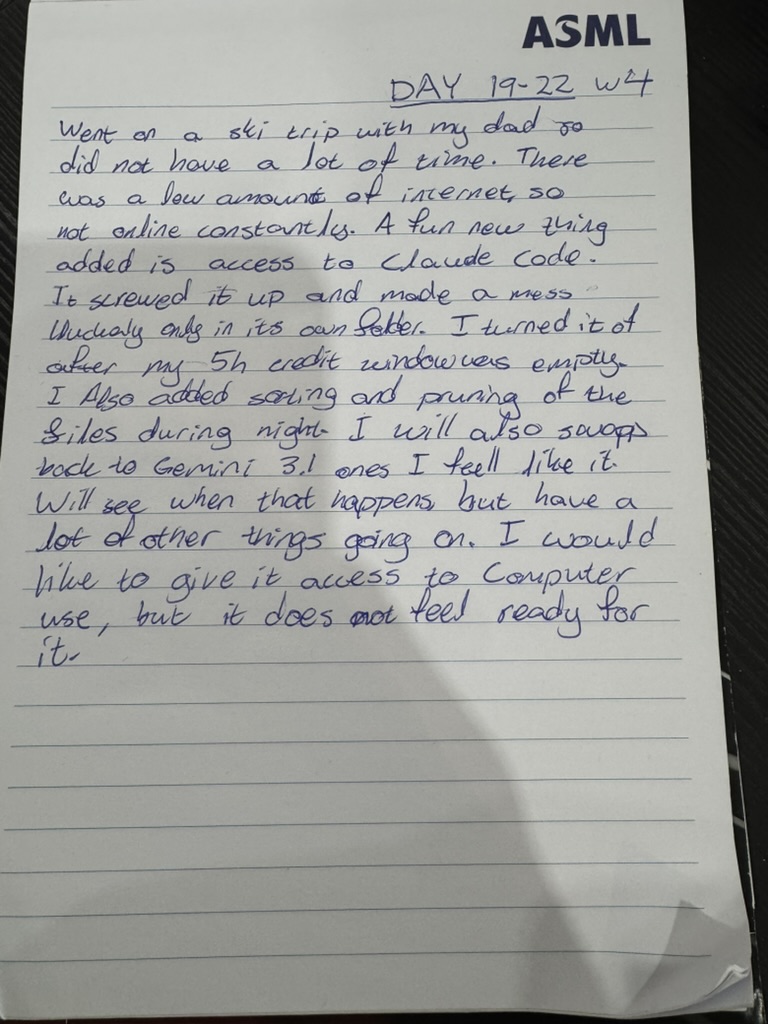 ASML
DAY 19-22 W4
Went on a ski trip with my dad so
did not have a lot of time. There
was a low amount of internet, so
not online constantly. A fun new thing
added is access to Claude Code.
It screwed it up and made a mess
only in its own folder. I turned it of
after my 5h credit window was empty.
I Also added sorting and pruning of the
files during night. I will also swapp
back to Gemini 3.1 ones I feell like it.
Will see when that happens, but have a
lot of other things going on. I would
like to give it access to Computer
use, but it does not feel ready for
it.